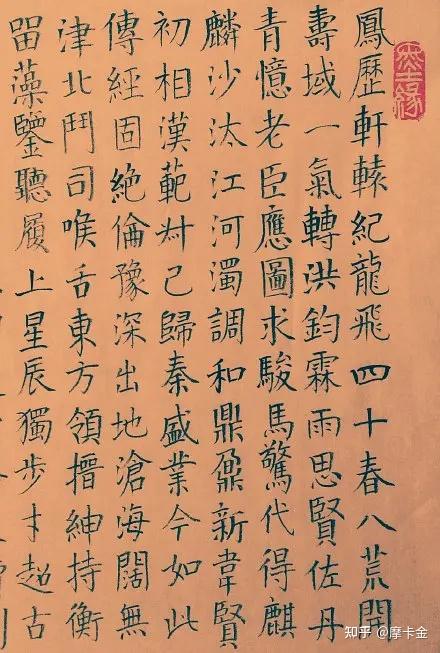 鳳歷軒轅紀龍飛四十春八荒開
壽域一氣轉洪鈞霖雨思賢佐丹
青憶老臣應圖求駿馬驚代得麒
麟沙汰江河濁調和鼎鼐新韋賢
初相漢範叔已歸秦盛業今如此
傳經固絶倫豫深出地滄海闊無
津北鬥司喉舌東方領搢紳持衡
留藻鑒聽履上星辰獨步才超古
知乎 @摩卡金